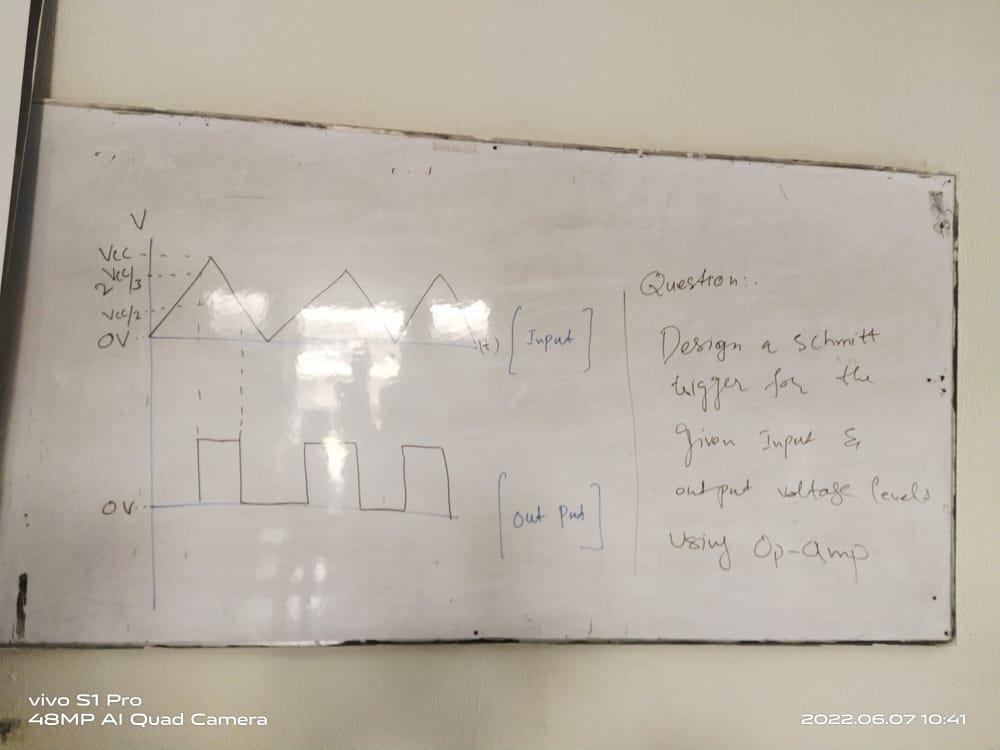 V
Vcc
2Vcc/3
Vcc/2
0V
(t)
[Input]
0V
[Out Put]
Question:.
Design a Schmitt
trigger for the
given Input &
output voltage levels
using Op-amp
vivo S1 Pro
48MP AI Quad Camera
2022.06.07 10:41